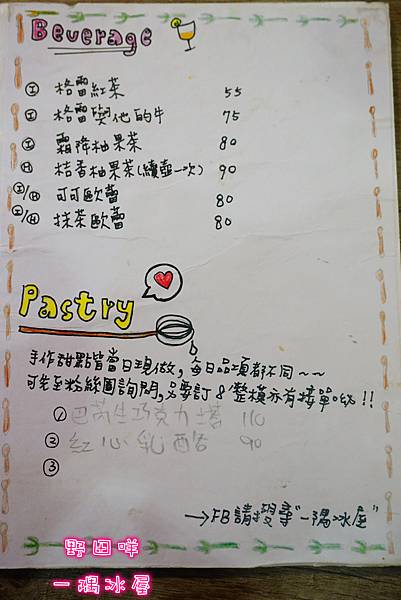 Beverage
Ⓘ 格雷紅茶 55
Ⓘ 格雷與他的牛 75
Ⓘ 霜降柚果茶 80
Ⓗ 桔香柚果茶(續壺一次) 90
Ⓘ/Ⓗ 可可歐蕾 80
Ⓘ/Ⓗ 抹茶歐蕾 80
Pastry
手作甜點皆當日現做,每日品項都不同~~
可先至粉絲團詢問,必要訂8"整模亦有接單呦!!
① 巴芮生巧克力塔 110
② 紅心乳酪 90
③
→FB請搜尋"一隅冰屋"
野囝咩
一隅冰屋